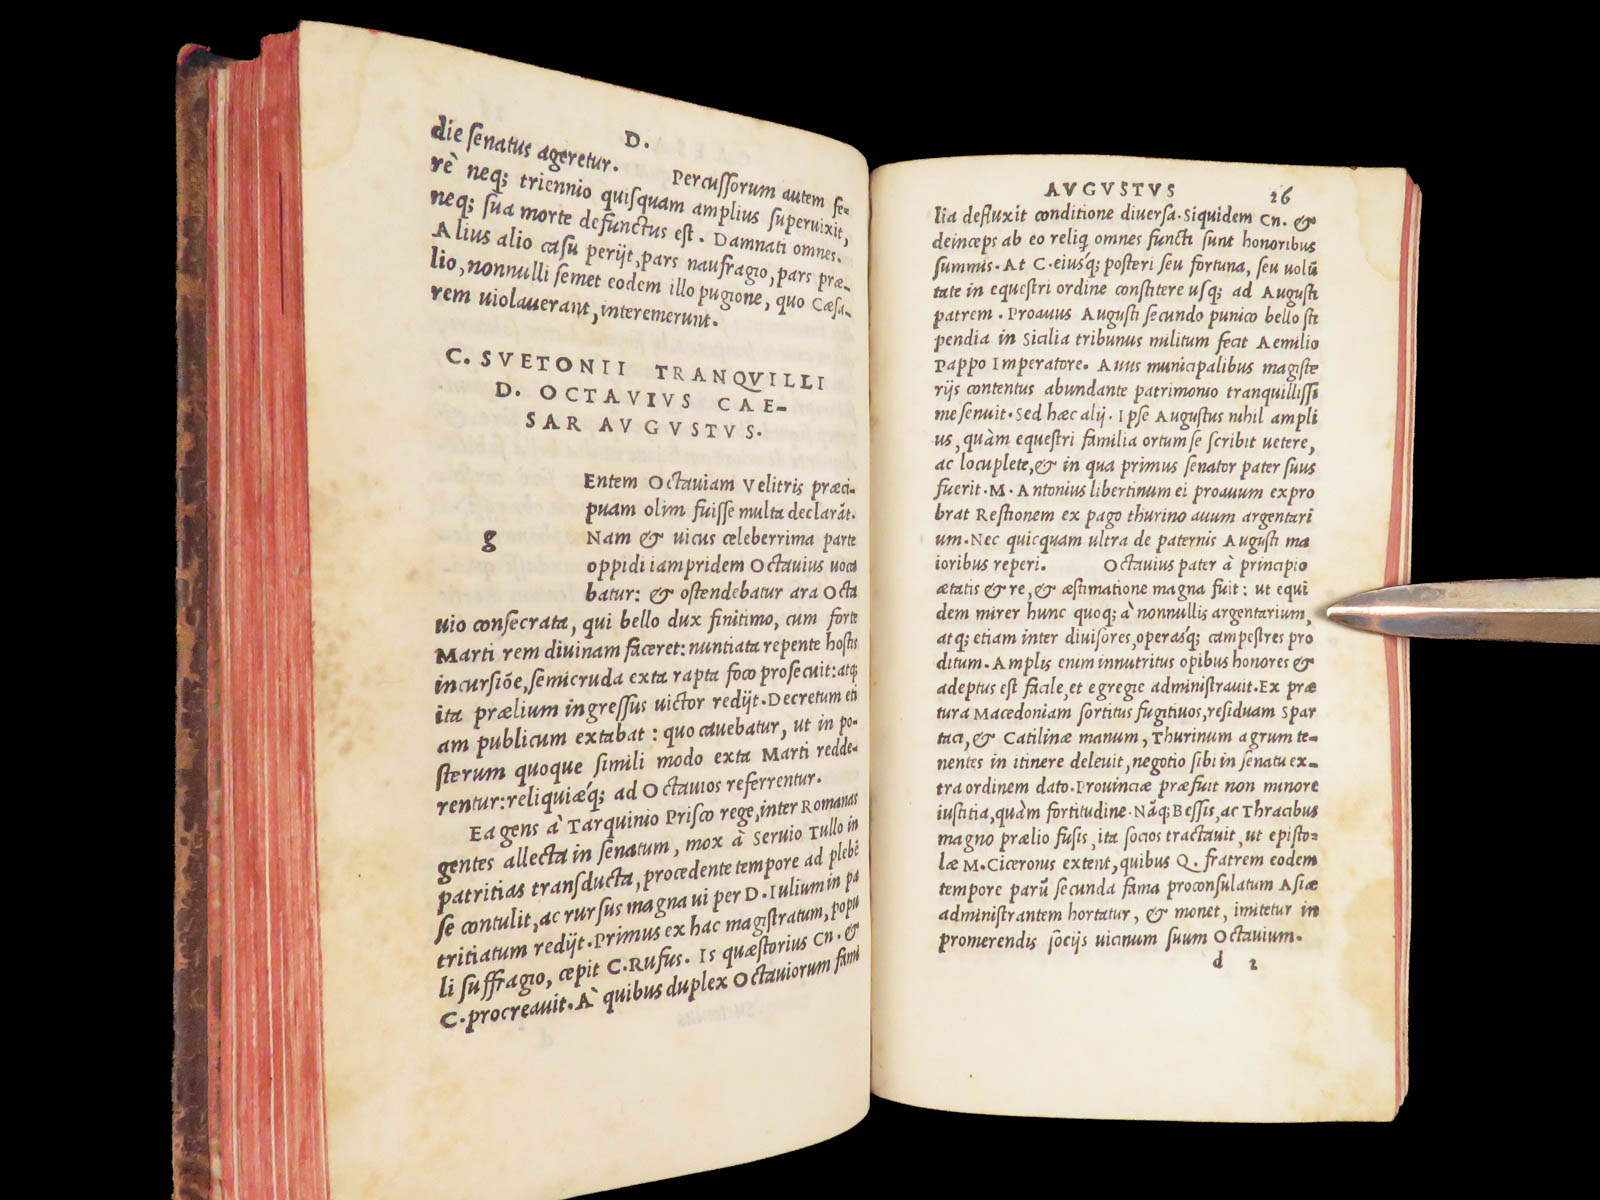 D.
die senatus ageretur. Percussorum autem fe-
rè neq; triennio quisquam amplius superuixit,
neq; sua morte defunctus est. Damnati omnes.
Alius alio casu perijt, pars naufragio, pars præ-
lio, nonnulli semet eodem illo pugione, quo Cæsa-
rem uiolauerant, interemerunt.
C. SVETONII TRANQVILLI
D. OCTAVIVS CAE-
SAR AVGVSTVS.
Entem Octauiam Velitris præci-
puam olim fuisse multa declarāt.
g Nam & uicus celeberrima parte
oppidi iampridem Octauius uoca
batur: & ostendebatur ara Octa
uio consecrata, qui bello dux finitimo, cum forte
Marti rem diuinam faceret: nuntiata repente hostis
incursiōe, semicruda exta rapta foco prosecuit: atq;
ita prælium ingressus uictor redijt. Decretum eti
am publicum extabat: quo cauebatur, ut in po-
sterum quoque simili modo exta Marti redde-
rentur: reliquiæq; ad Octauios referrentur.
Ea gens à Tarquinio Prisco rege, inter Romanas
gentes allecta in senatum, mox à Seruio Tullo in
patritias transducta, procedente tempore ad plebē
se contulit, ac rursus magna ui per D. Iulium in pa
tritiatum redijt. Primus ex hac magistratum, popu
li suffragio, cœpit C. Rufus. Is quæstorius Cn. &
C. procreauit. A` quibus duplex Octauiorum fami
AVGVSTVS 26
lia defluxit conditione diuersa. Siquidem Cn. &
deinceps ab eo reliq̨ omnes functi sunt honoribus
summis. At C. eiusq́; posteri seu fortuna, seu uolū
tate in equestri ordine constitere usq; ad Augusti
patrem. Proauus Augusti secundo punico bello sti
pendia in Sicilia tribunus militum fecit Aemilio
Pappo Imperatore. Auus municipalibus magiste
rijs contentus abundante patrimonio tranquillissi
me senuit. Sed hæc alij. Ipse Augustus nihil ampli
us, quàm equestri familia ortum se scribit uetere,
ac locuplete, & in qua primus senator pater suus
fuerit. M. Antonius libertinum ei proauum expro
brat Restionem ex pago thurino auum argentari
um. Nec quicquam ultra de paternis Augusti ma
ioribus reperi. Octauius pater à principio
ætatis & re, & æstimatione magna fuit: ut equi
dem mirer hunc quoq; à nonnullis argentarium,
atq; etiam inter diuisores, operasq́; campestres pro
ditum. Amplis enim innutritus opibus honores &
adeptus est facile, et egregie administrauit. Ex præ
tura Macedoniam sortitus fugitiuos, residuam Spar
taci, & Catilinæ manum, Thurinum agrum te-
nentes in itinere deleuit, negotio sibi in senatu ex-
tra ordinem dato. Prouinciæ præfuit non minore
iustitia, quàm fortitudine. Nāq; Bessis, ac Thracibus
magno prælio fusis, ita socios tractauit, ut episto-
læ M. Ciceronis extent, quibus Q. fratrem eodem
tempore parū secunda fama proconsulatum Asiæ
administrantem hortatur, & monet, imitetur in
promerendis socijs uicinum suum Octauium.
d 2